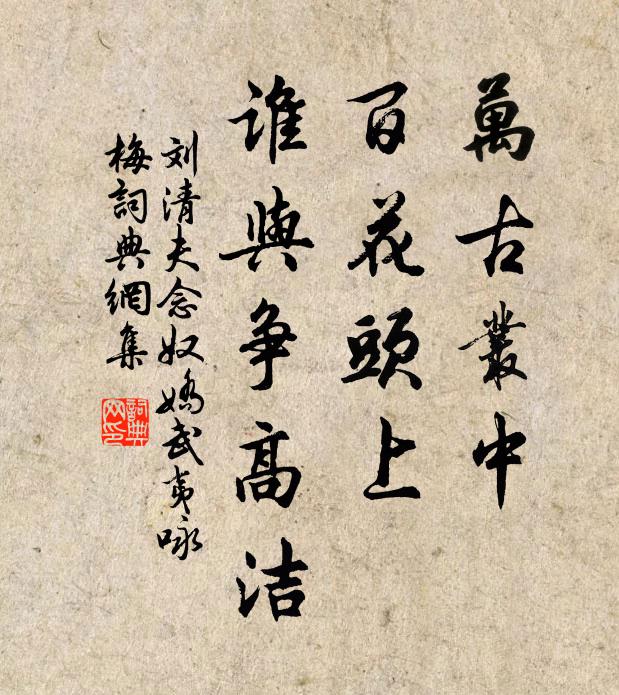 萬古叢中
百花頭上
誰與争高洁
刘清夫念奴嬌武夷咏
梅詞典網集
詞典
网印